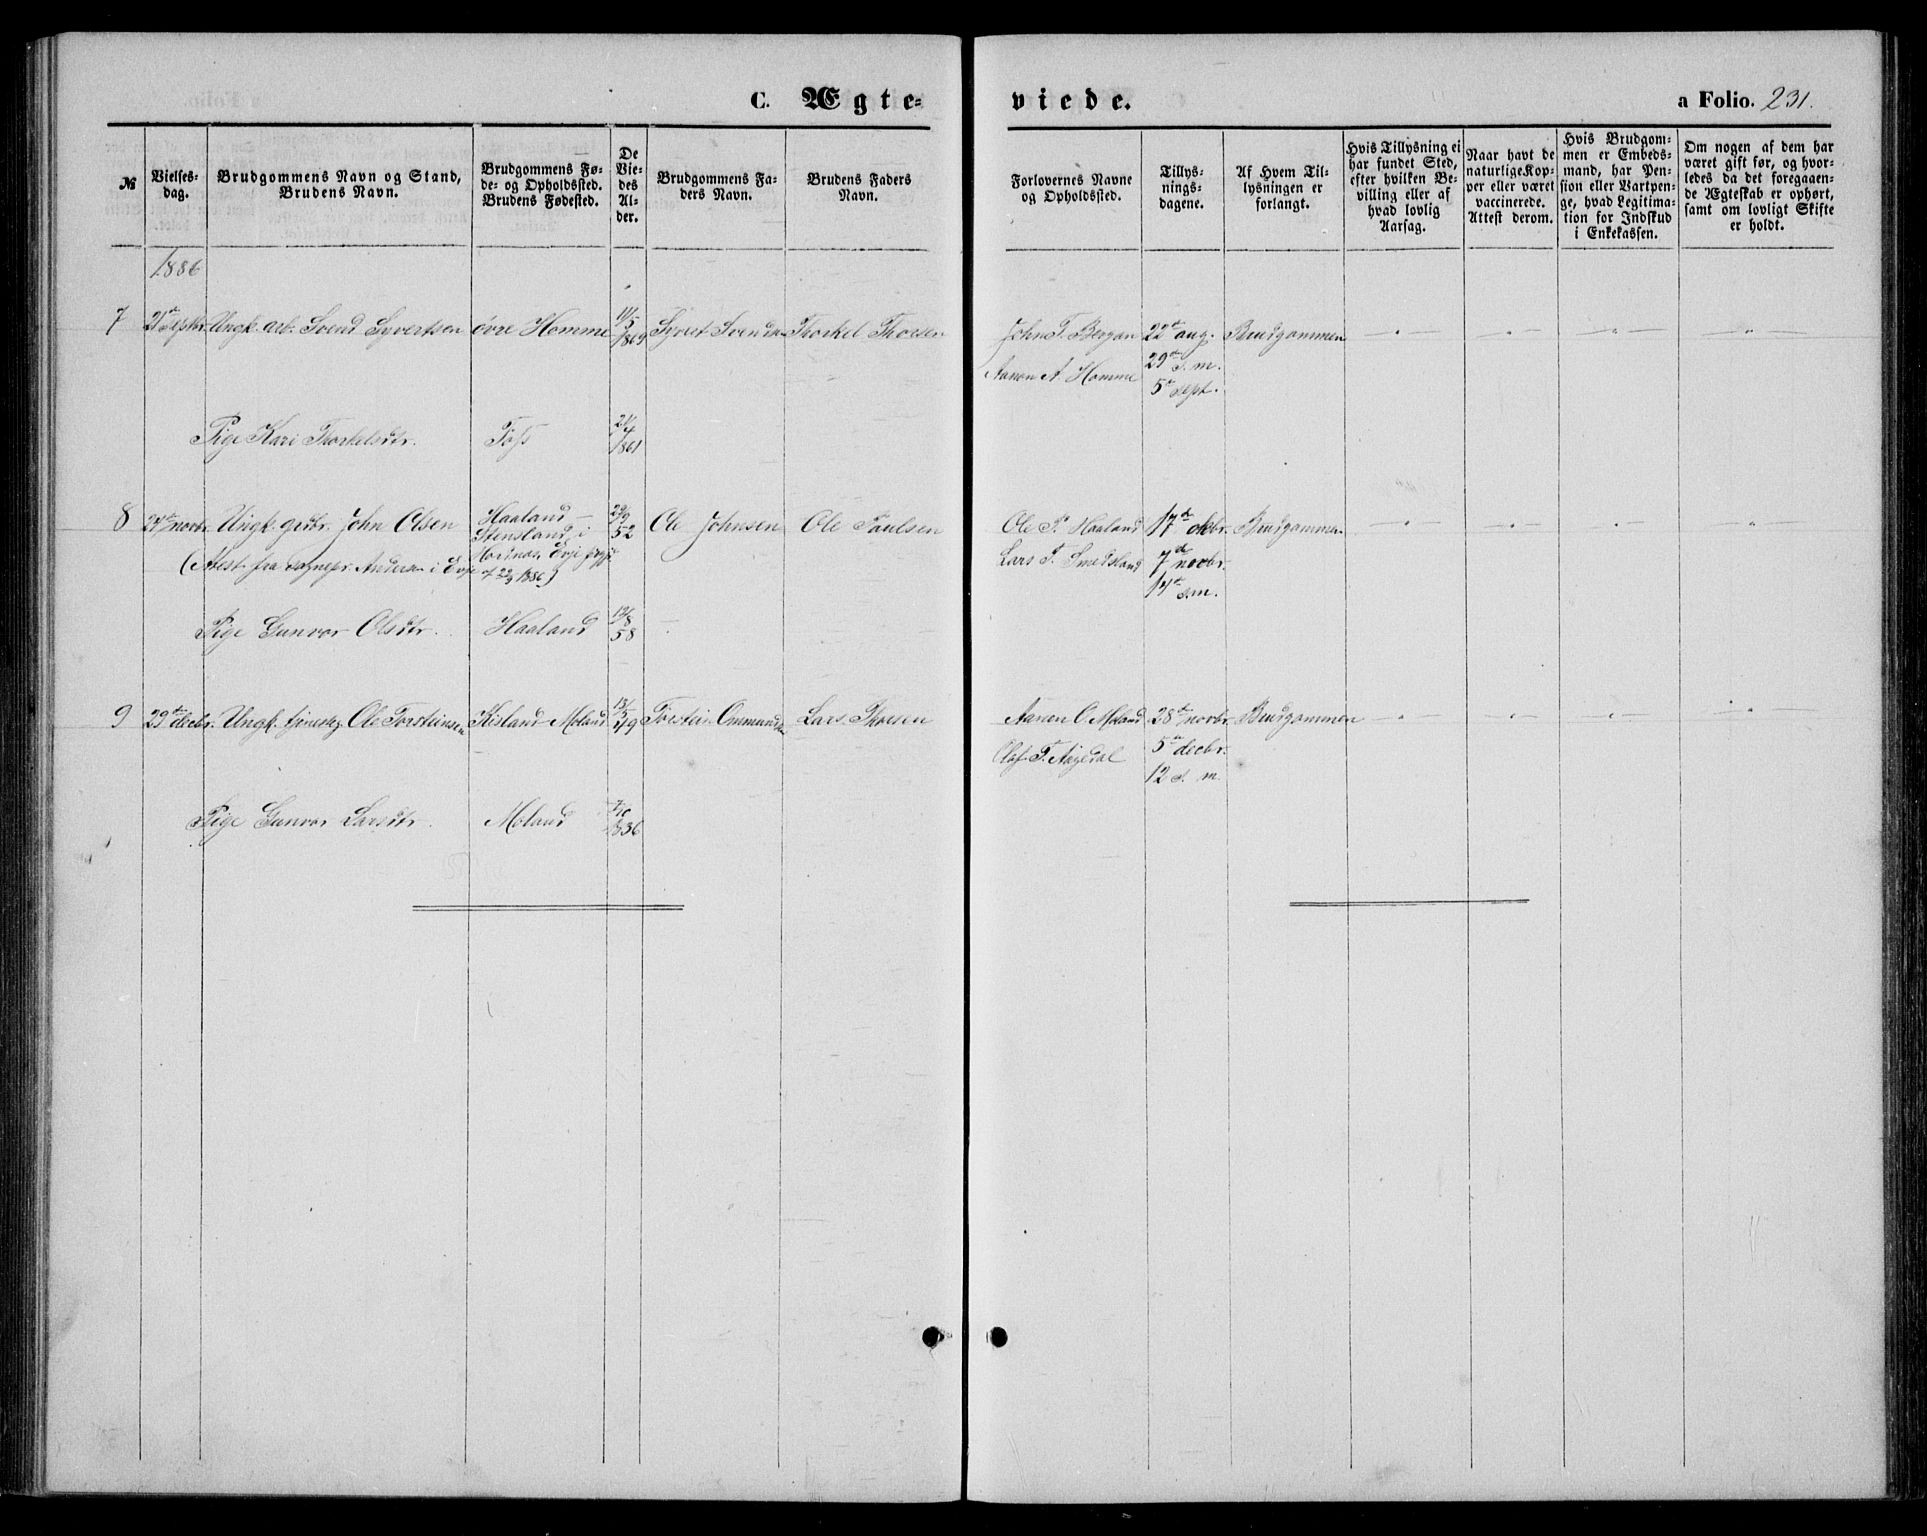 C. Ægte=
viede.
a Folio. 231.
№
Vielses-
dag.
Brudgommens Navn og Stand,
Brudens Navn.
Brudgommens Fø-
de- og Opholdssted.
Brudens Fødested.
De
Vie-
des
Al-
der.
Brudgommens Fa-
ders Navn.
Brudens Faders
Navn.
Forlovernes Navne
og Opholdssted.
Tillys-
nings-
dagene.
Af Hvem Til-
lysningen er
forlangt.
Hvis Tillysning ei
har fundet Sted,
efter hvilken Be-
villing eller af
hvad lovlig
Aarsag.
Naar havt de
naturlige Kop-
per eller været
vaccinerede.
Attest derom.
Hvis Brudgom-
men er Embeds-
mand, har Pen-
sion eller Vartpen-
ge, hvad Legitima-
tion for Indskud
i Enkekassen.
Om nogen af dem har
været gift før, og hvor-
ledes da det foregaaen-
de Ægteskab er ophørt,
samt om lovligt Skifte
er holdt.
1886
7 21de septbr. Ungk. arb. Svend Syvertsen øvre Homme 11/5 Thorkel Thorsen John T. Bergan 22de aug. Brudgommen
Aanon A. Homme 29de s. m.
5te sept.
Pige Kari Thorkelsdtr. 1861
8 24de novbr. Ungk. grdbr. John Olsen Haaland - 52 Ole Johnsen Ole Paulsen Ole P. Haaland 17de Brudgommen
Stensland i
(Attest fra sognepr. Andersen i Evje Lars T. Smedsland 7de novbr.
1886) 14de s.m.
Pige Gunvor Olsdtr. Haaland 58
9 29de decbr. Ungk. Ole Torsteinsen Moland Lars Thorsen Aanon O. Moland 28de novbr. Brudgommen
Olaf T. Aagedal 5te decbr.
12 s. m.
Pige Gunvor Larsdtr. Moland